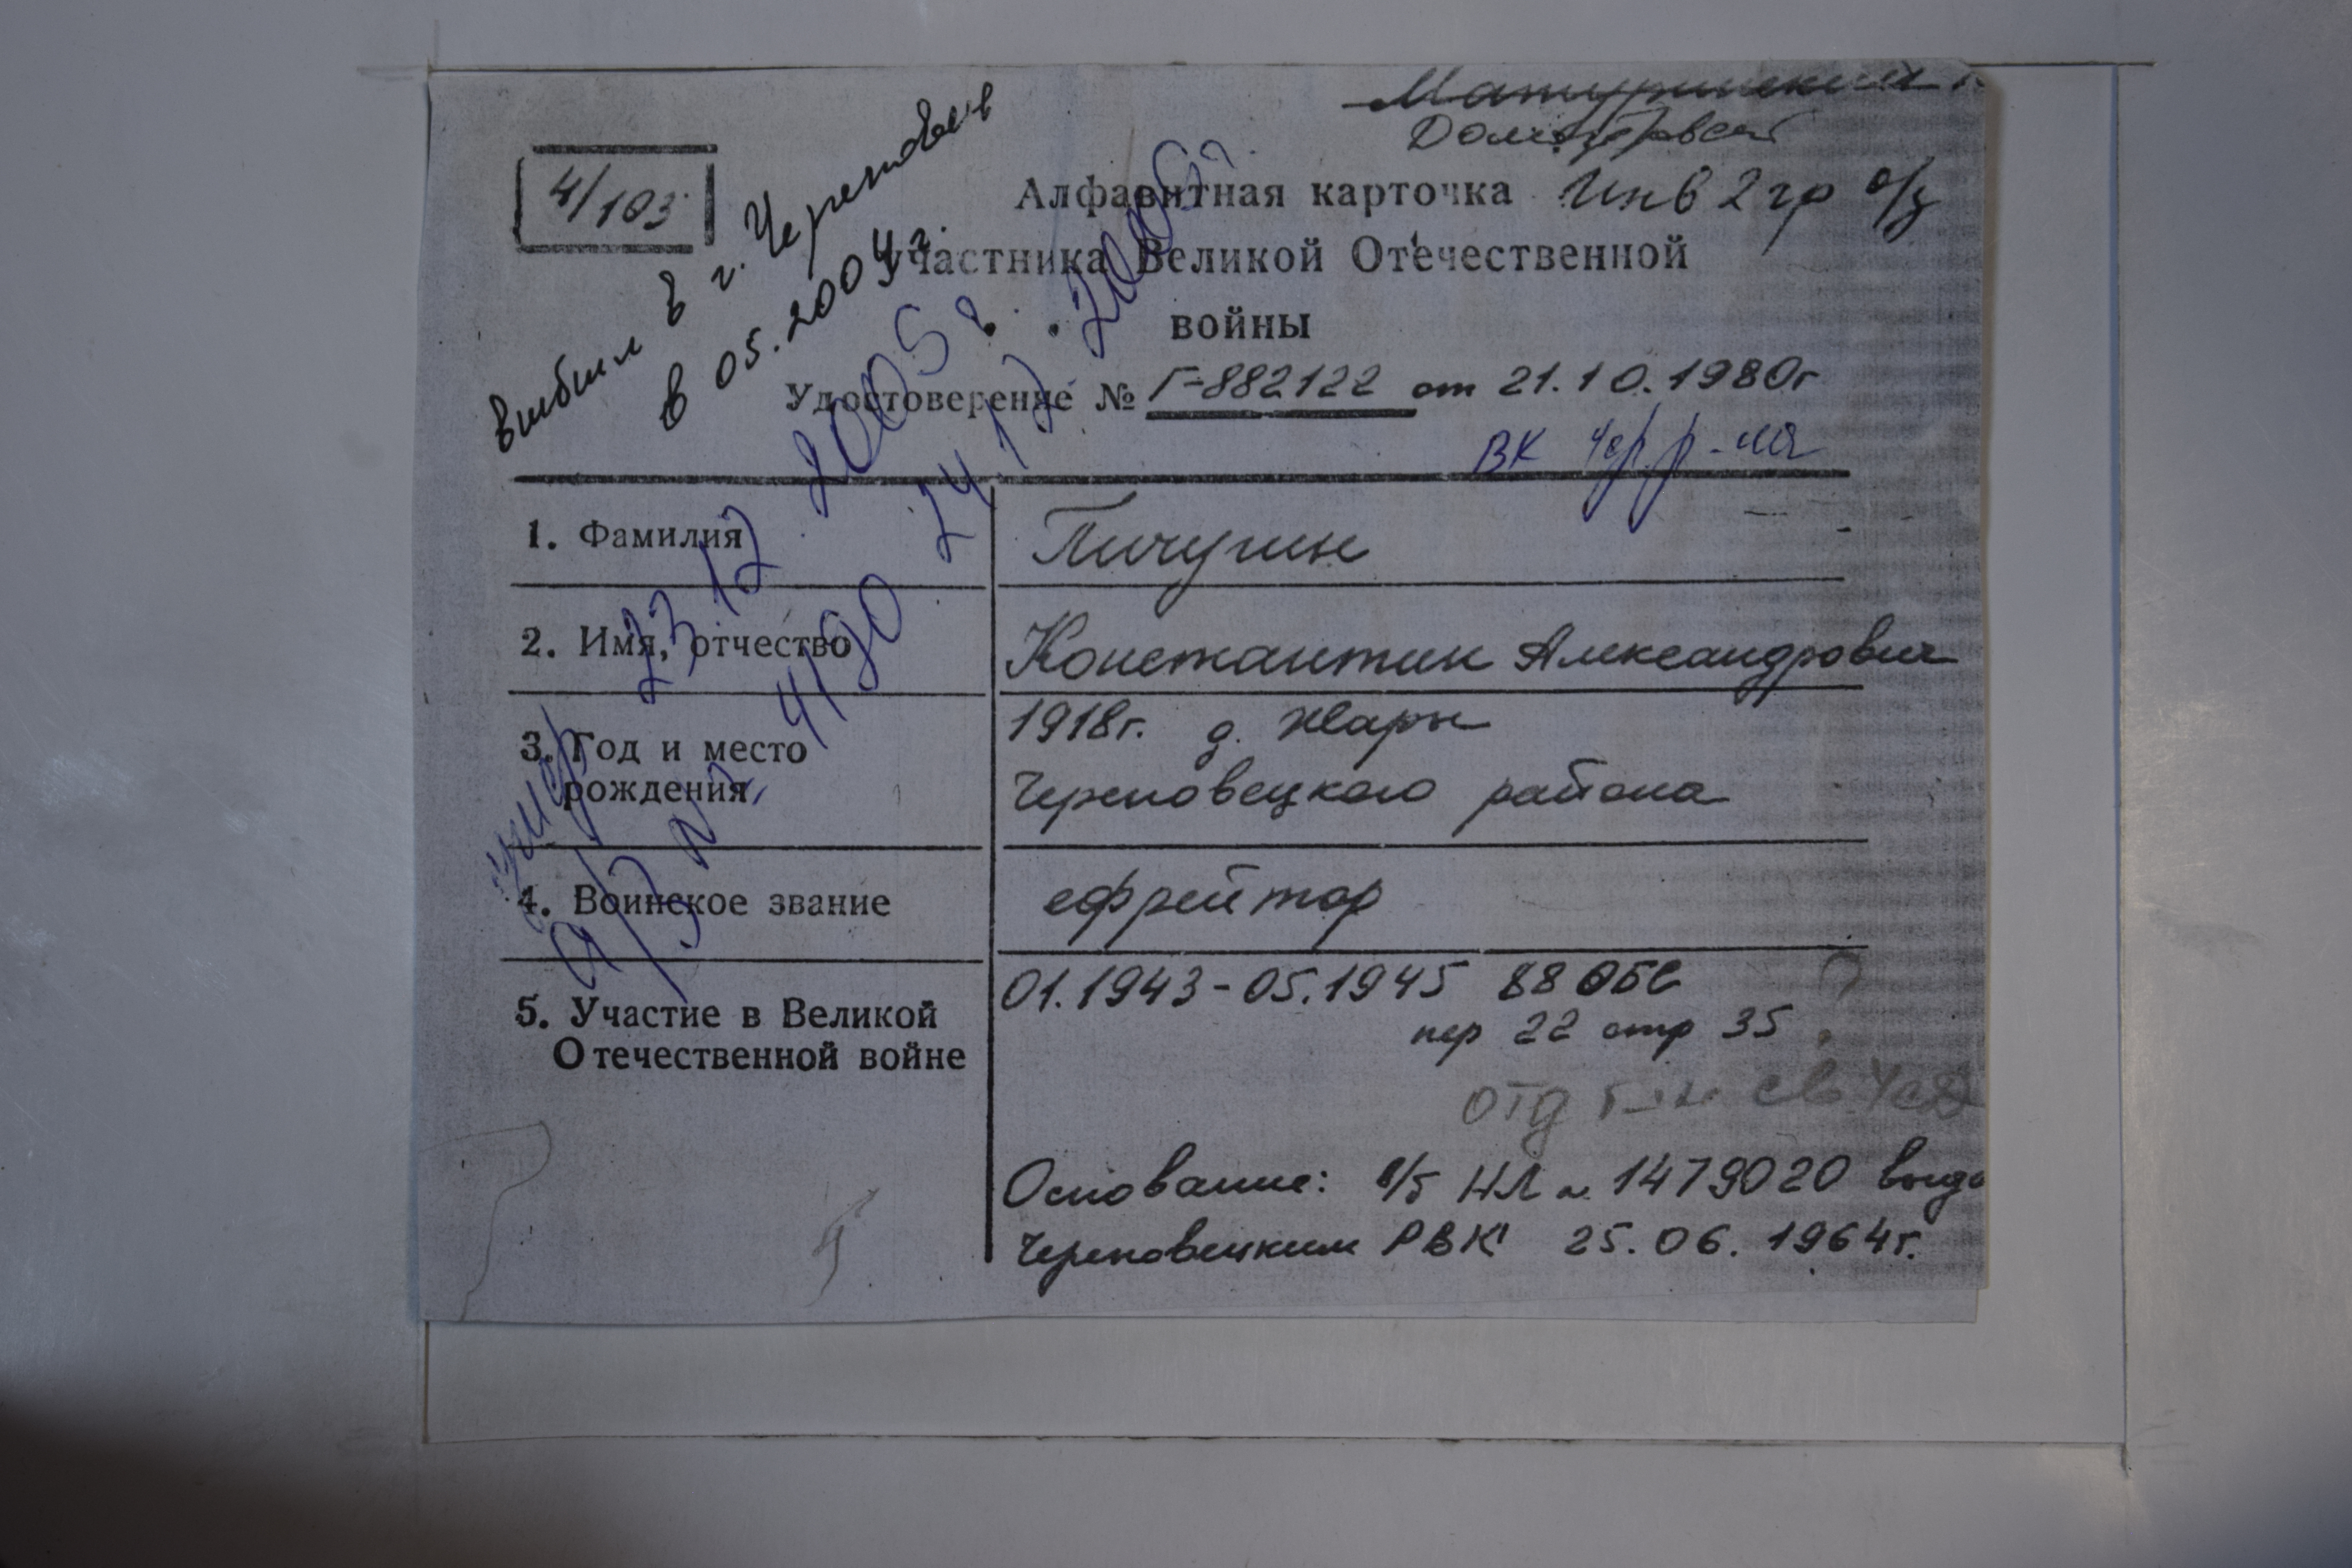 Матуринский
4/103
Алфавитная карточка Инв 2 гр о/з
участника Великой Отечественной
войны
выбыл в г. Череповец
в 05.2004 г.
Удостоверение № Г-882122 от 21.10.1980г
ВК Чер. р-на
1. Фамилия Пичугин
2. Имя, отчество Константин Александрович
3. Год и место 1918г. д. Жары
рождения Череповецкого района
4. Воинское звание ефрейтор
5. Участие в Великой 01.1943-05.1945 88 ОБС
Отечественной войне пер 22 стр 35
отд б-н св
Основание: в/б НЛ № 1479020 выда
Череповецким РВК 25.06.1964г.
умер 23 12 2005 г.
а/з № 4190 24 12 2005г.